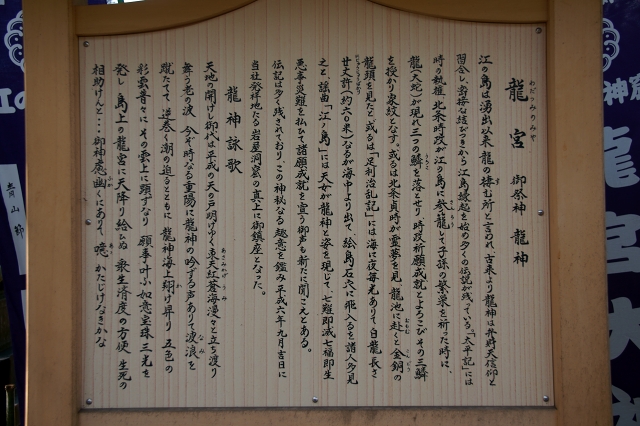 わだつみのみや
龍宮 御祭神 龍神
江の島は湧出以来、龍の棲む所と言われ、古来より龍神は弁財天信仰と
習合し、密接な結びつきから江島縁起を始め多くの伝説が残っている。「太平記」には
時の執権、北条時政が江の島に参籠して子孫の繁栄を祈った時に、
龍(大蛇)が現れ三つの鱗を落とせり、時政祈願成就とよろこびその三鱗
を授かり家紋となす。或るは北条貞時が霊夢を見、龍池に赴くと金銅の
龍頭を見たと、或るは「足利治乱記」には海に夜毎光ありて、白龍長さ
廿丈許(約六〇米)なるが海中より出て、絵島石穴に飛入るを諸人多見
之と、謡曲「江ノ島」には天女が龍神と姿を現じて、七難即滅七福即生
悪事災難を払ひて諸願成就を宣う御声も新たに聞こえとある。
伝記は多く残されており、この神秘なる趣意を鑑み平成六年九月吉日に
当社発祥地たる岩屋洞窟の真上に御鎮座となった。
龍神詠歌
天地の開けし御代は平成の天の戸明けゆく東天紅蒼海漫々と立ち渡り
舞う老の波 今ぞ時なる重陽に龍神の吟ずる声ありて波浪を
蹴たてて 逆巻く潮の迫るとともに 龍神海上翔け早り 五色の
彩雲沓々に その雲上に顕ずなり 願事叶ふ如意宝珠 三光を
発し 島上の龍宮に天降り給ひぬ 衆生済度の方便 生死の
相助けんと・・御神慮幽にありそ、噫、かたじけなきかな
青山
龍宮大神